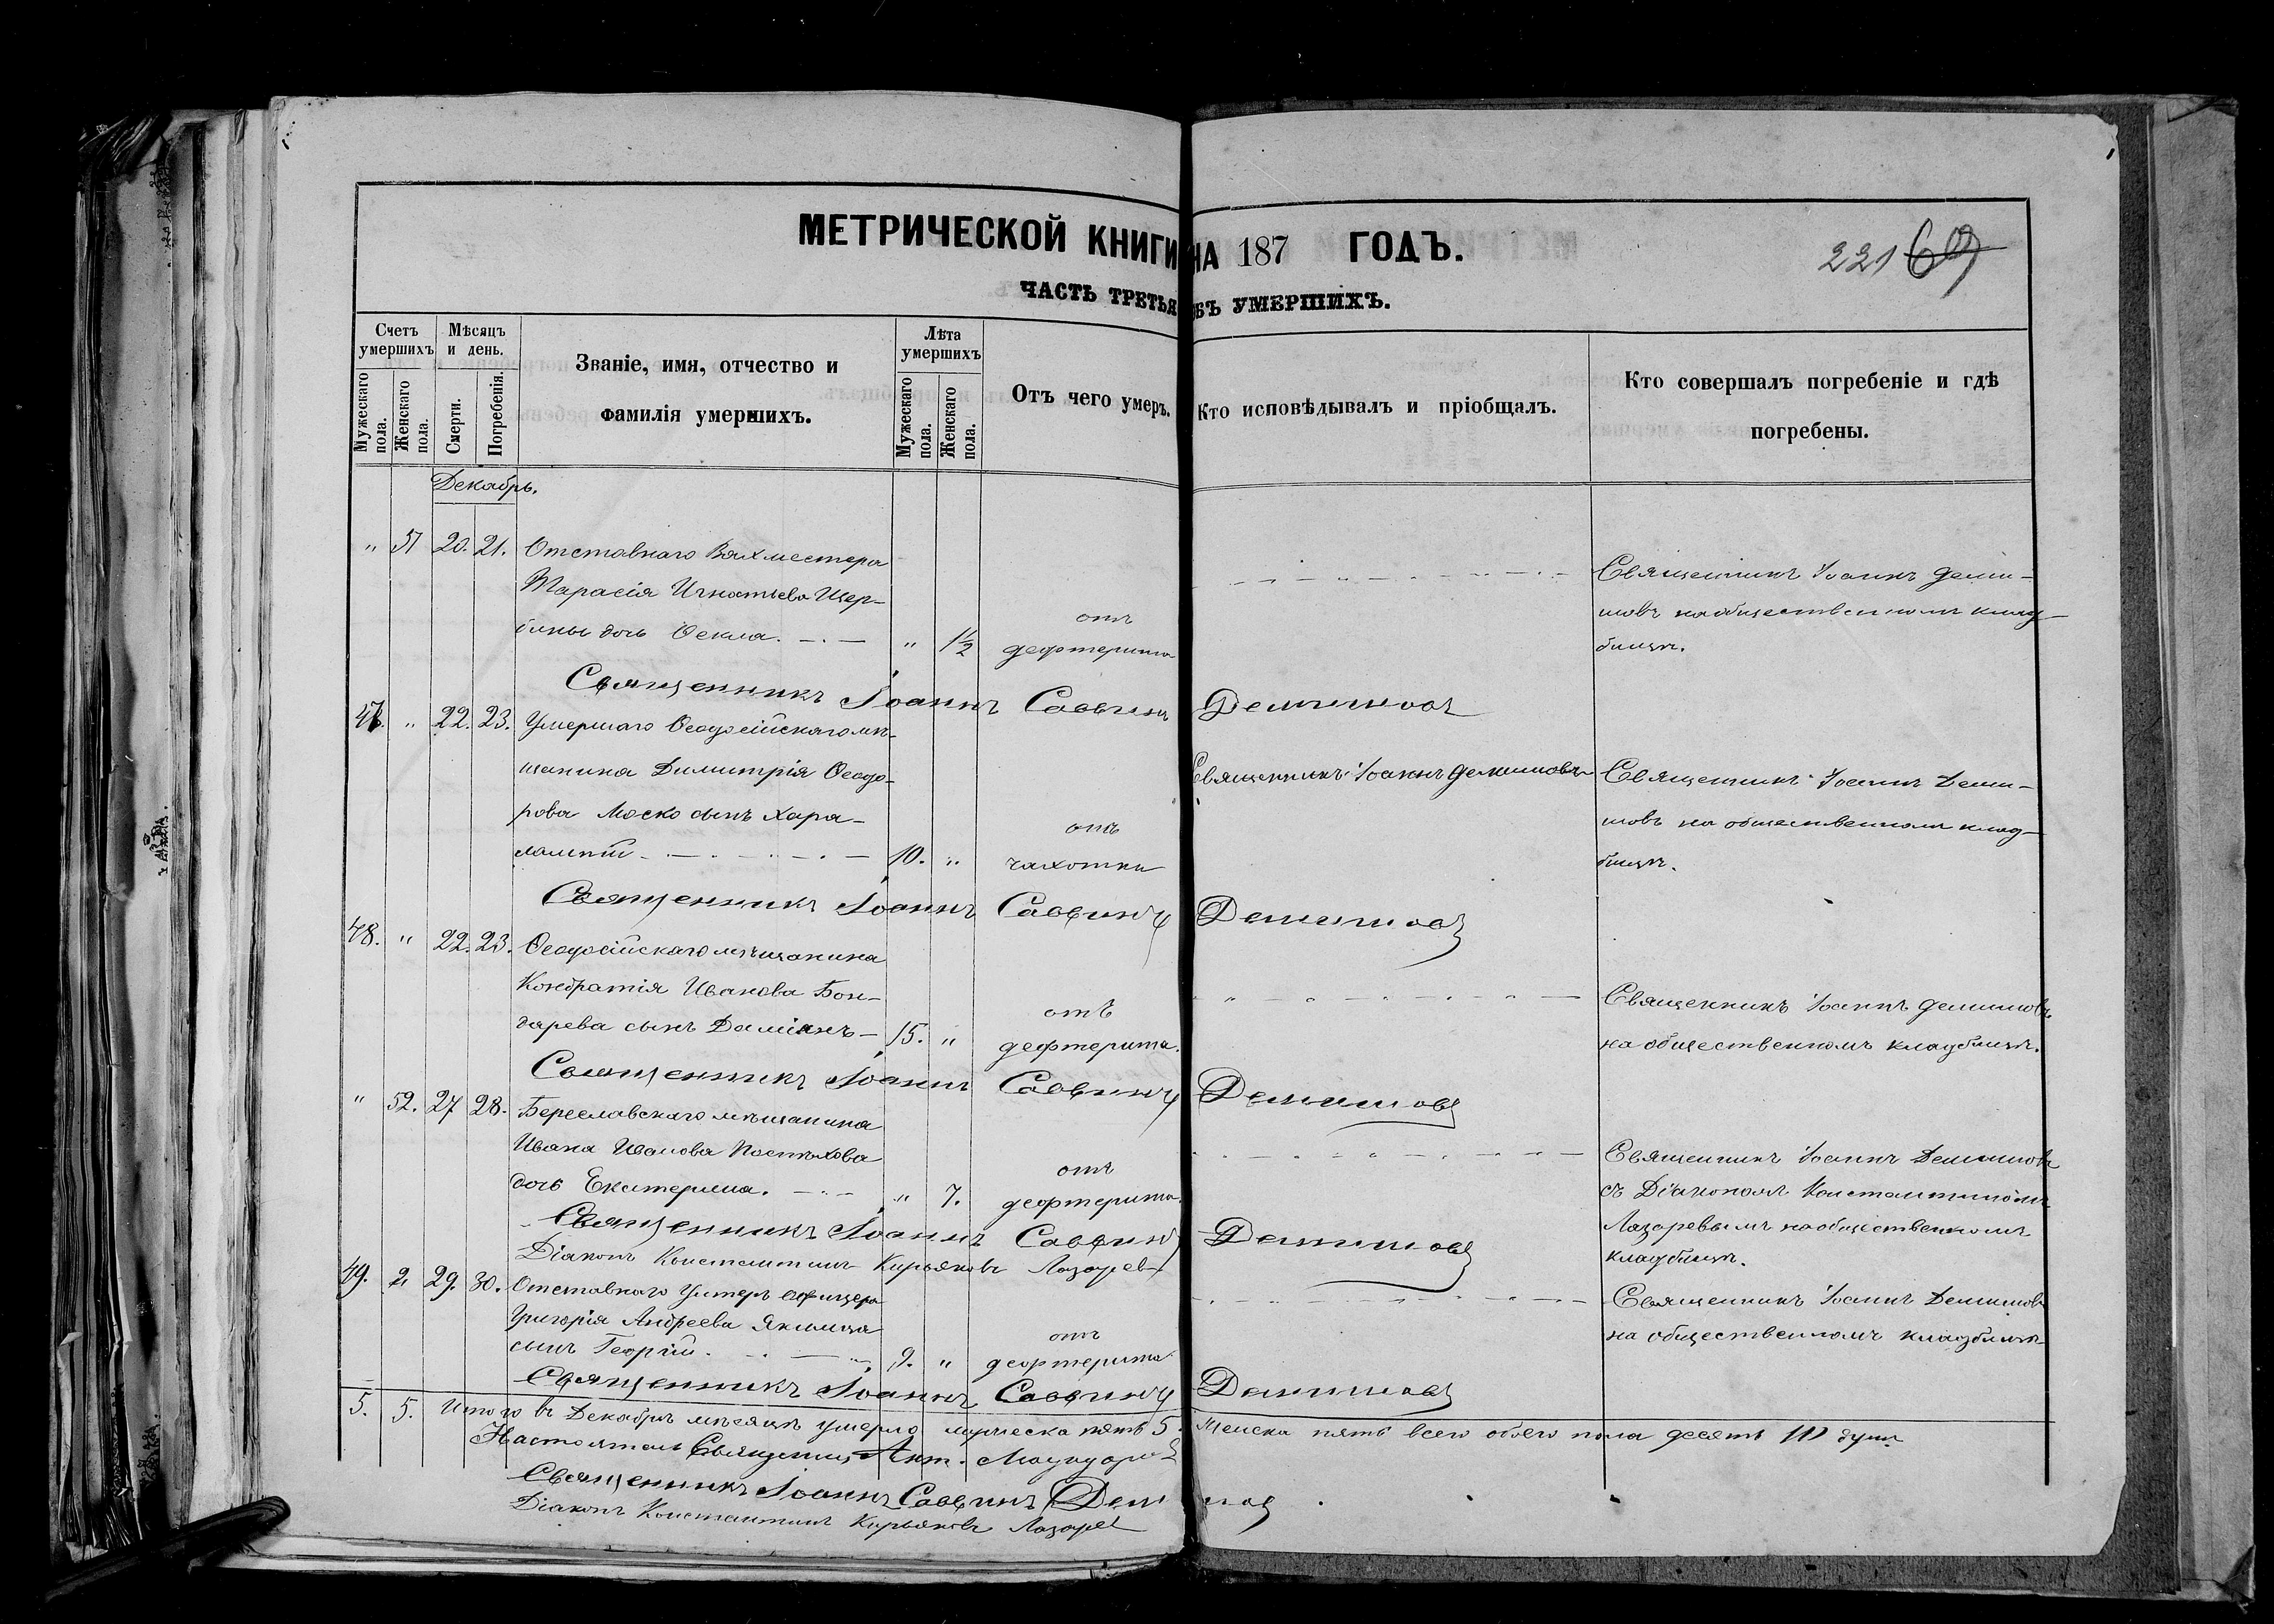 МЕТРИЧЕСКОЙ КНИГИ НА 187 ГОДЪ.
221 69
ЧАСТЬ ТРЕТЬЯ ОБЪ УМЕРШИХЪ.
Счетъ умершихъ
Мужескаго пола.
Женскаго пола.
Мѣсяцъ и день.
Смерти.
Погребенія.
Званіе, имя, отчество и
фамилія умершихъ.
Лѣта умершихъ
Мужескаго пола.
Женскаго пола.
Отъ чего умеръ.
Кто исповѣдывалъ и пріобщалъ.
Кто совершалъ погребеніе и гдѣ
погребены.
Декабрь.
" 51 20. 21. Отставнаго Вахместера
Тарасія Игнатьева Щер-
бины дочь Ѳекла. " 1½
отъ
дефтерита
Священникъ Іоаннъ Деми-
новъ на общественномъ клад-
бищѣ.
Священникъ Іоаннъ Саввинъ Деминовъ
47. " 22. 23. Умершаго Ѳеодосійскаго мѣ-
щанина Димитрія Ѳеодо-
рова Моско сынъ Хара-
лампій 10. "
отъ
чахотки
Священникъ Іоаннъ Деминовъ
Священникъ Іоаннъ Деми-
новъ на общественномъ клад-
бищѣ.
Священникъ Іоаннъ Саввинъ Деминовъ
48. " 22. 23. Ѳеодосійскаго мѣщанина
Кондратія Иванова Бон-
дарева сынъ Даміанъ 15. "
отъ
дефтерита.
Священникъ Іоаннъ Деминовъ
на общественномъ кладбищѣ.
Священникъ Іоаннъ Саввинъ Деминовъ
" 52. 27 28. Береславскаго мѣщанина
Ивана Иванова
дочь Екатерина. " 7.
отъ
дефтерита.
Священникъ Іоаннъ Деминовъ
съ Діакономъ Константиномъ
Лазаревымъ на общественномъ
кладбищѣ.
Священникъ Іоаннъ Саввинъ Деминовъ
Діаконъ Константинъ Кирьяковъ Лазарев
49. 29. 30. Отставнаго Унтеръ офицера
Григорія Андреева
сынъ Георгій. 9. "
отъ
дефтерита
Священникъ Іоаннъ Деминовъ
на общественномъ кладбищѣ
Священникъ Іоаннъ Саввинъ Деминовъ
5. 5. Итого въ Декабрѣ мѣсяцѣ умерло мужеска пять 5. женска пять всего обоего пола десять 10 душъ
Настоятель Священникъ
Священникъ Іоаннъ Саввинъ Деминов
Діаконъ Константинъ Кирьяковъ Лазарев